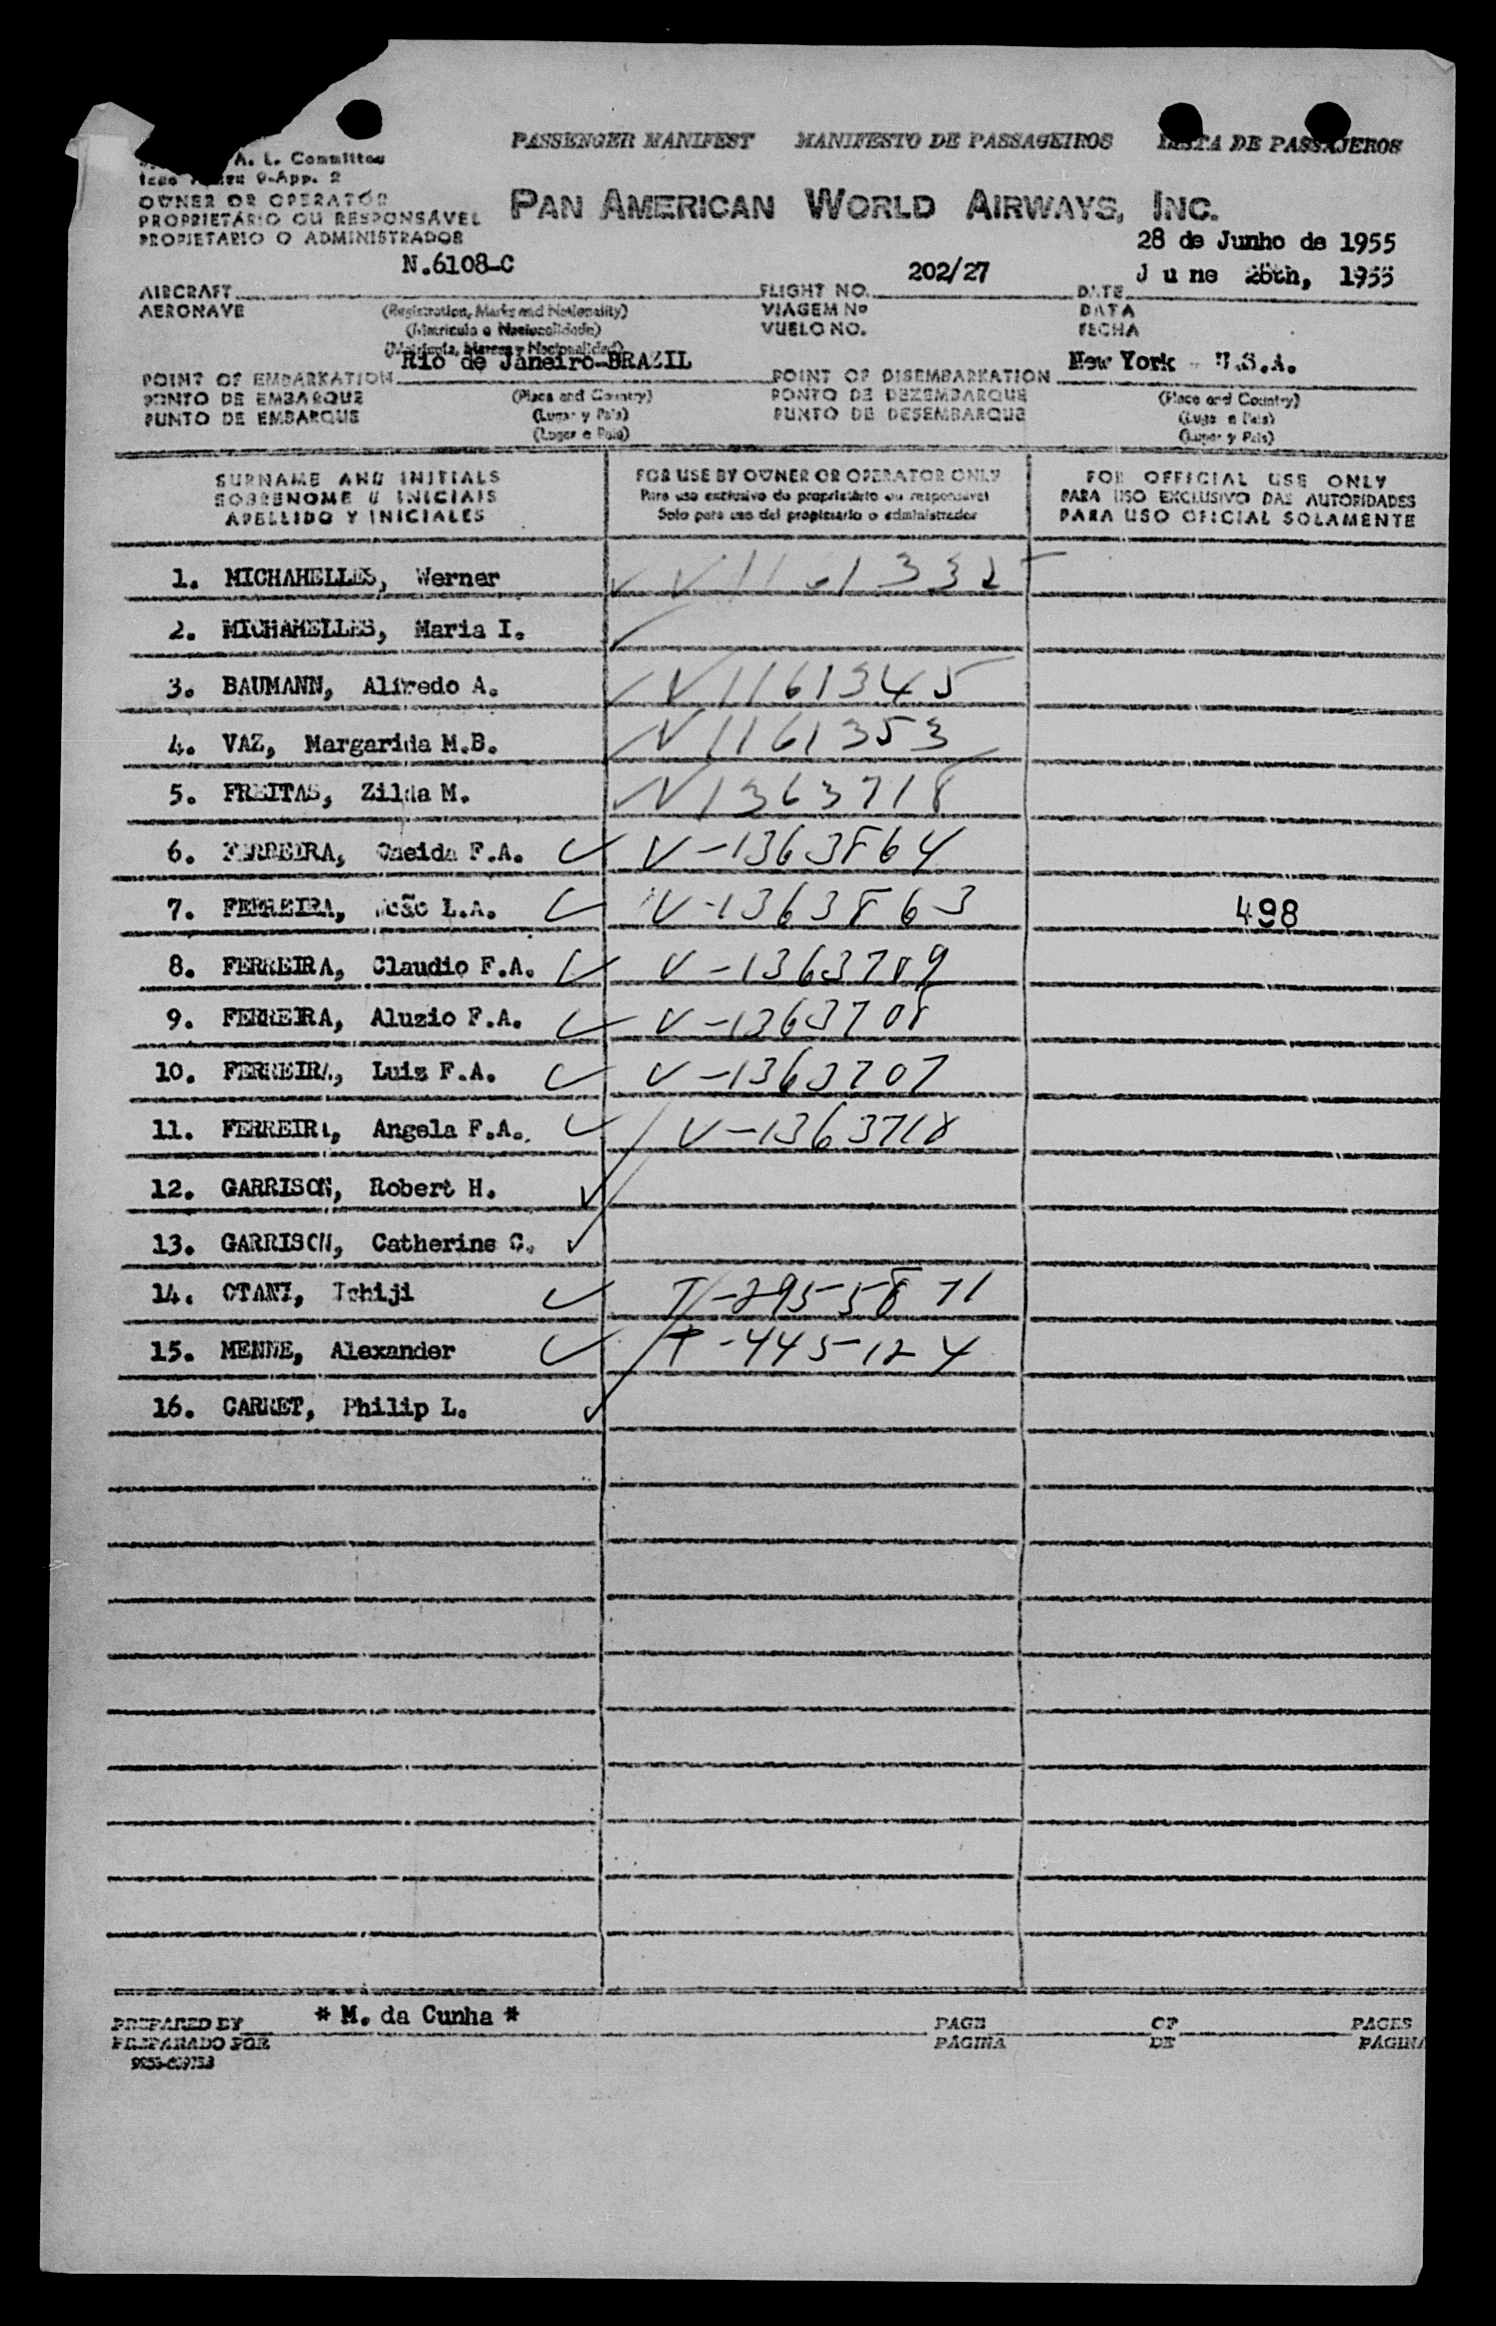 PASSENGER MANIFEST MANIFESTO DE PASSAGEIROS LISTA DE PASSAJEROS
A. L. Committee
9-App. 2
OWNER OR OPERATOR
PROPRIETÁRIO OU RESPONSAVEL
PROPIETARIO O ADMINISTRADOR
PAN AMERICAN WORLD AIRWAYS, INC.
28 de Junho de 1955
AIRCRAFT N.6108-C FLIGHT NO. 202/27 DATE June 28th, 1955
AERONAVE (Registration, Marks and Nationality) VIAGEM No DATA
(Matricula e Nacionalidade) VUELO NO. FECHA
(Matricula, Marcas y Nacionalidad)
POINT OF EMBARKATION Rio de Janeiro-BRAZIL POINT OF DISEMBARKATION New York - U.S.A.
PONTO DE EMBARQUE (Place and Country) PONTO DE DEZEMBARQUE (Place and Country)
PUNTO DE EMBARQUE (Lugar y Pais) PUNTO DE DESEMBARQUE (Luga e Pais)
(Lugar e Pais) (Lugar y Pais)
SURNAME AND INITIALS FOR USE BY OWNER OR OPERATOR ONLY FOR OFFICIAL USE ONLY
SOBRENOME U INICIAIS Para uso exclusivo do proprietário ou responsavel PARA USO EXCLUSIVO DAS AUTORIDADES
APELLIDO Y INICIALES Solo para uso del propietario o administrador PARA USO OFICIAL SOLAMENTE
1. MICHAHELLES, Werner
2. MICHAHELLES, Maria I.
3. BAUMANN, Alfredo A. V1161345
4. VAZ, Margarida M.B. V1161353
5. FREITAS, Zilda M. V1363718
6. FERREIRA, Oneida F.A. V-1363864
7. FERREIRA, João L.A. V-1363863 498
8. FERREIRA, Claudio F.A. V-1363709
9. FERREIRA, Aluzio F.A. V-1363708
10. FERREIRA, Luiz F.A. V-1363707
11. FERREIRA, Angela F.A. V-1363710
12. GARRISON, Robert H.
13. GARRISON, Catherine C.
14. OTANI, Ichiji T-2955871
15. MENNE, Alexander T-445124
16. CARRET, Philip L.
PREPARED BY * M. da Cunha * PAGE OF PAGES
PREPARADO POR PÁGINA DE PÁGINA